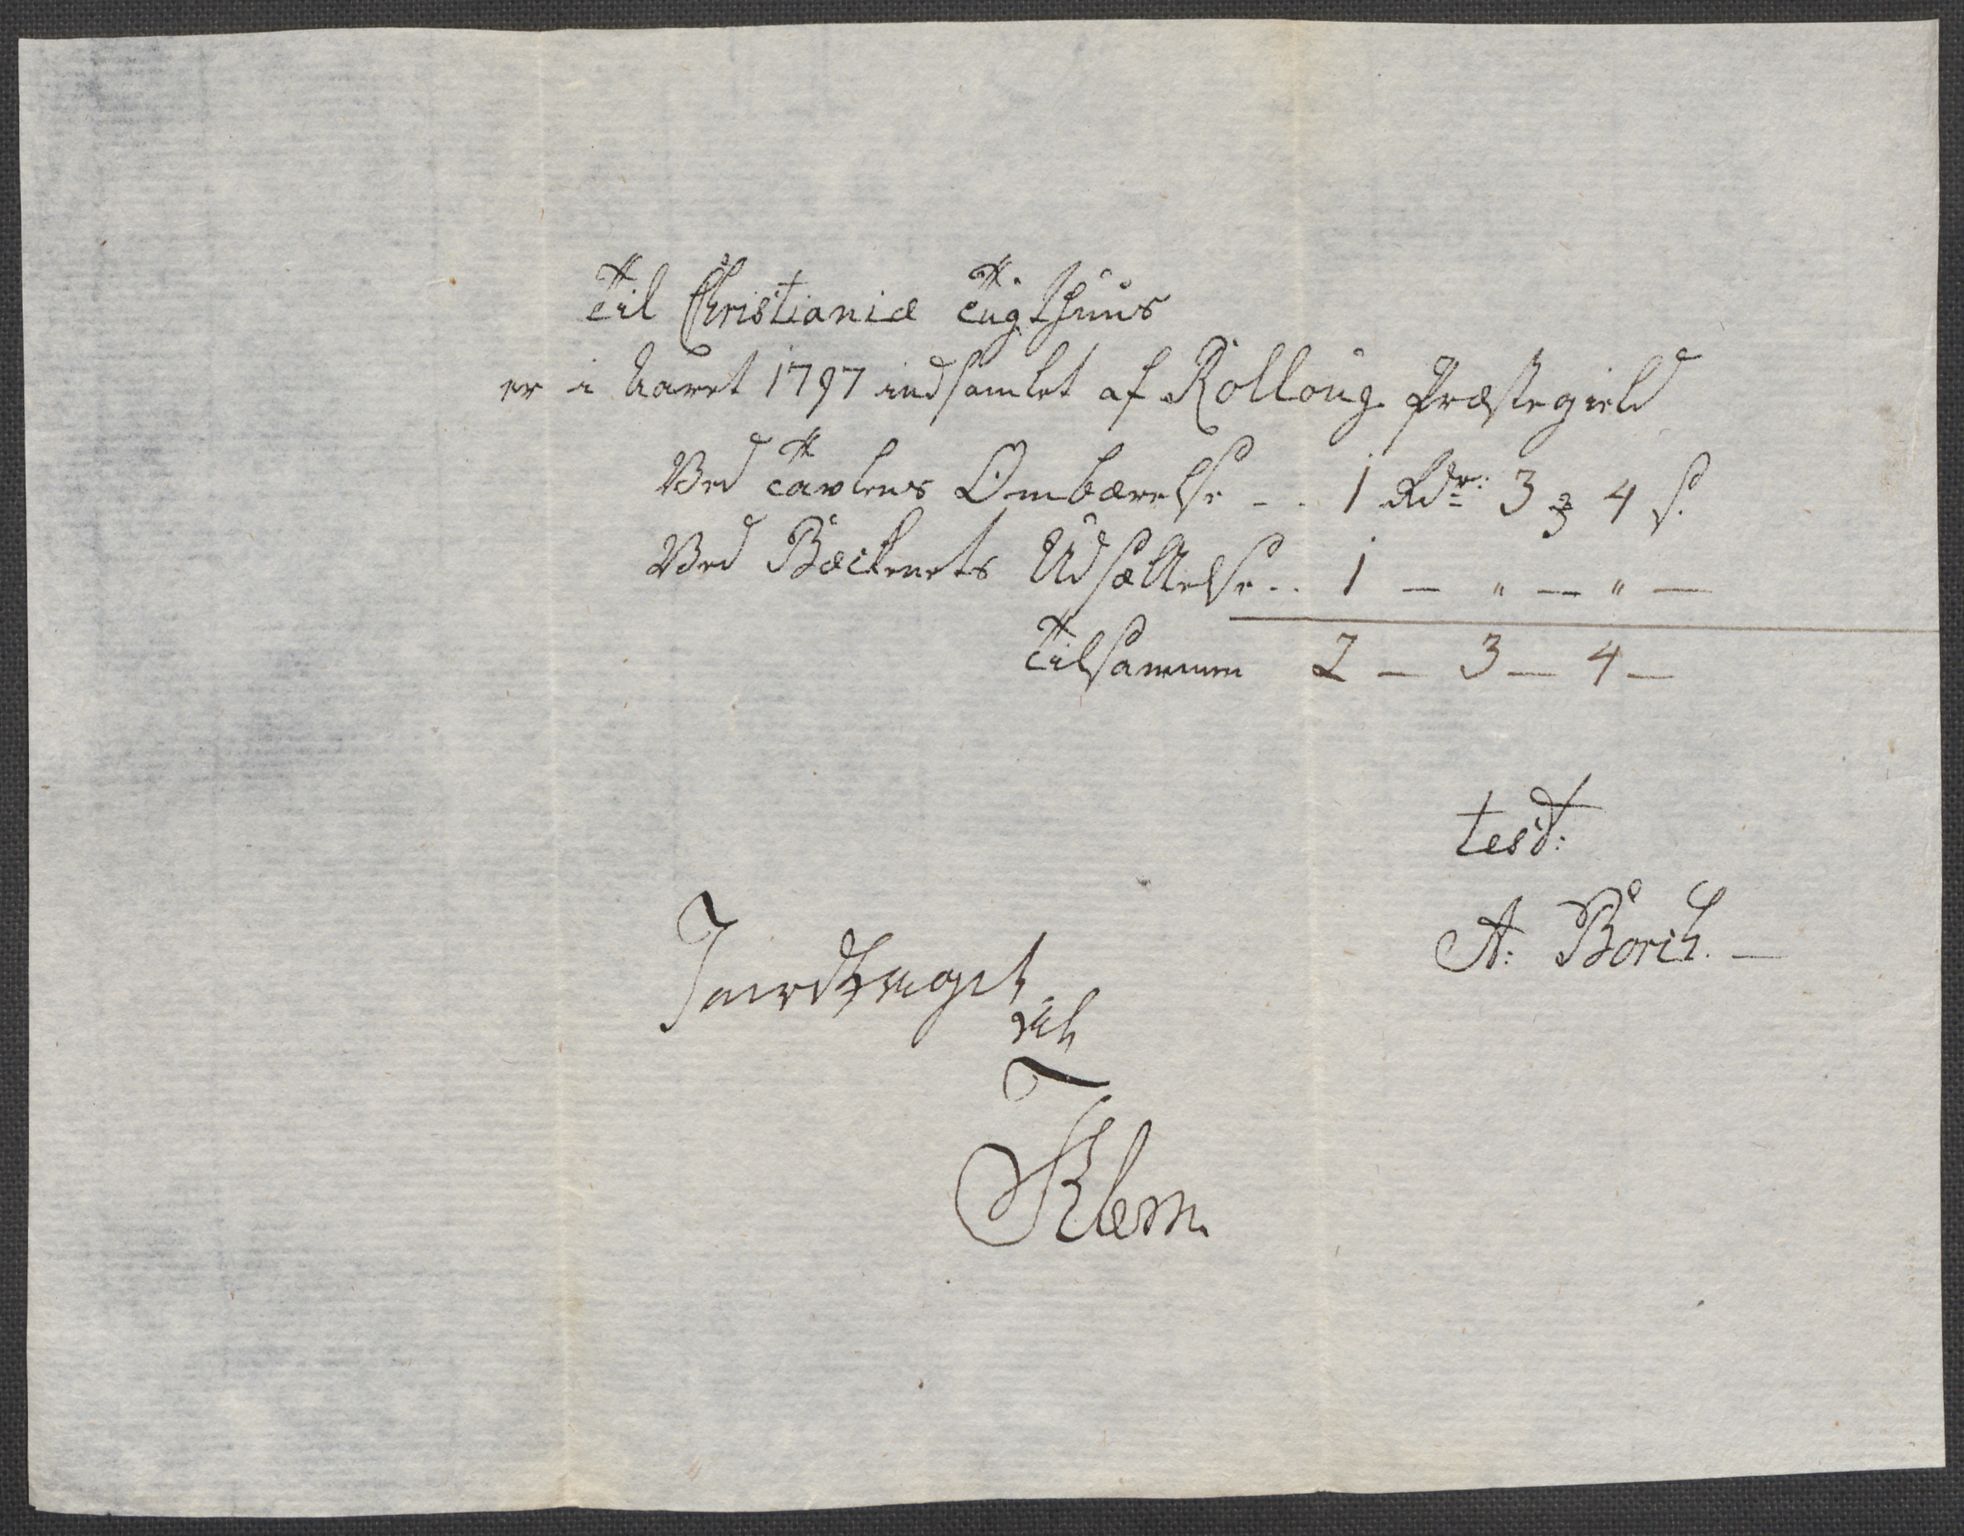 Til Christianiæ Tugthuus
er i Aaret 1797 indsamlet af Rolloug Præstegield
Ved Tavlens Ombærelse - - 1 Rdr: 3 ʒ 4 s.
Ved Bæckenets Udsættelse - - 1 — " — " —
Tilsammen 2 — 3 — 4 —
test:
A: Borch. —